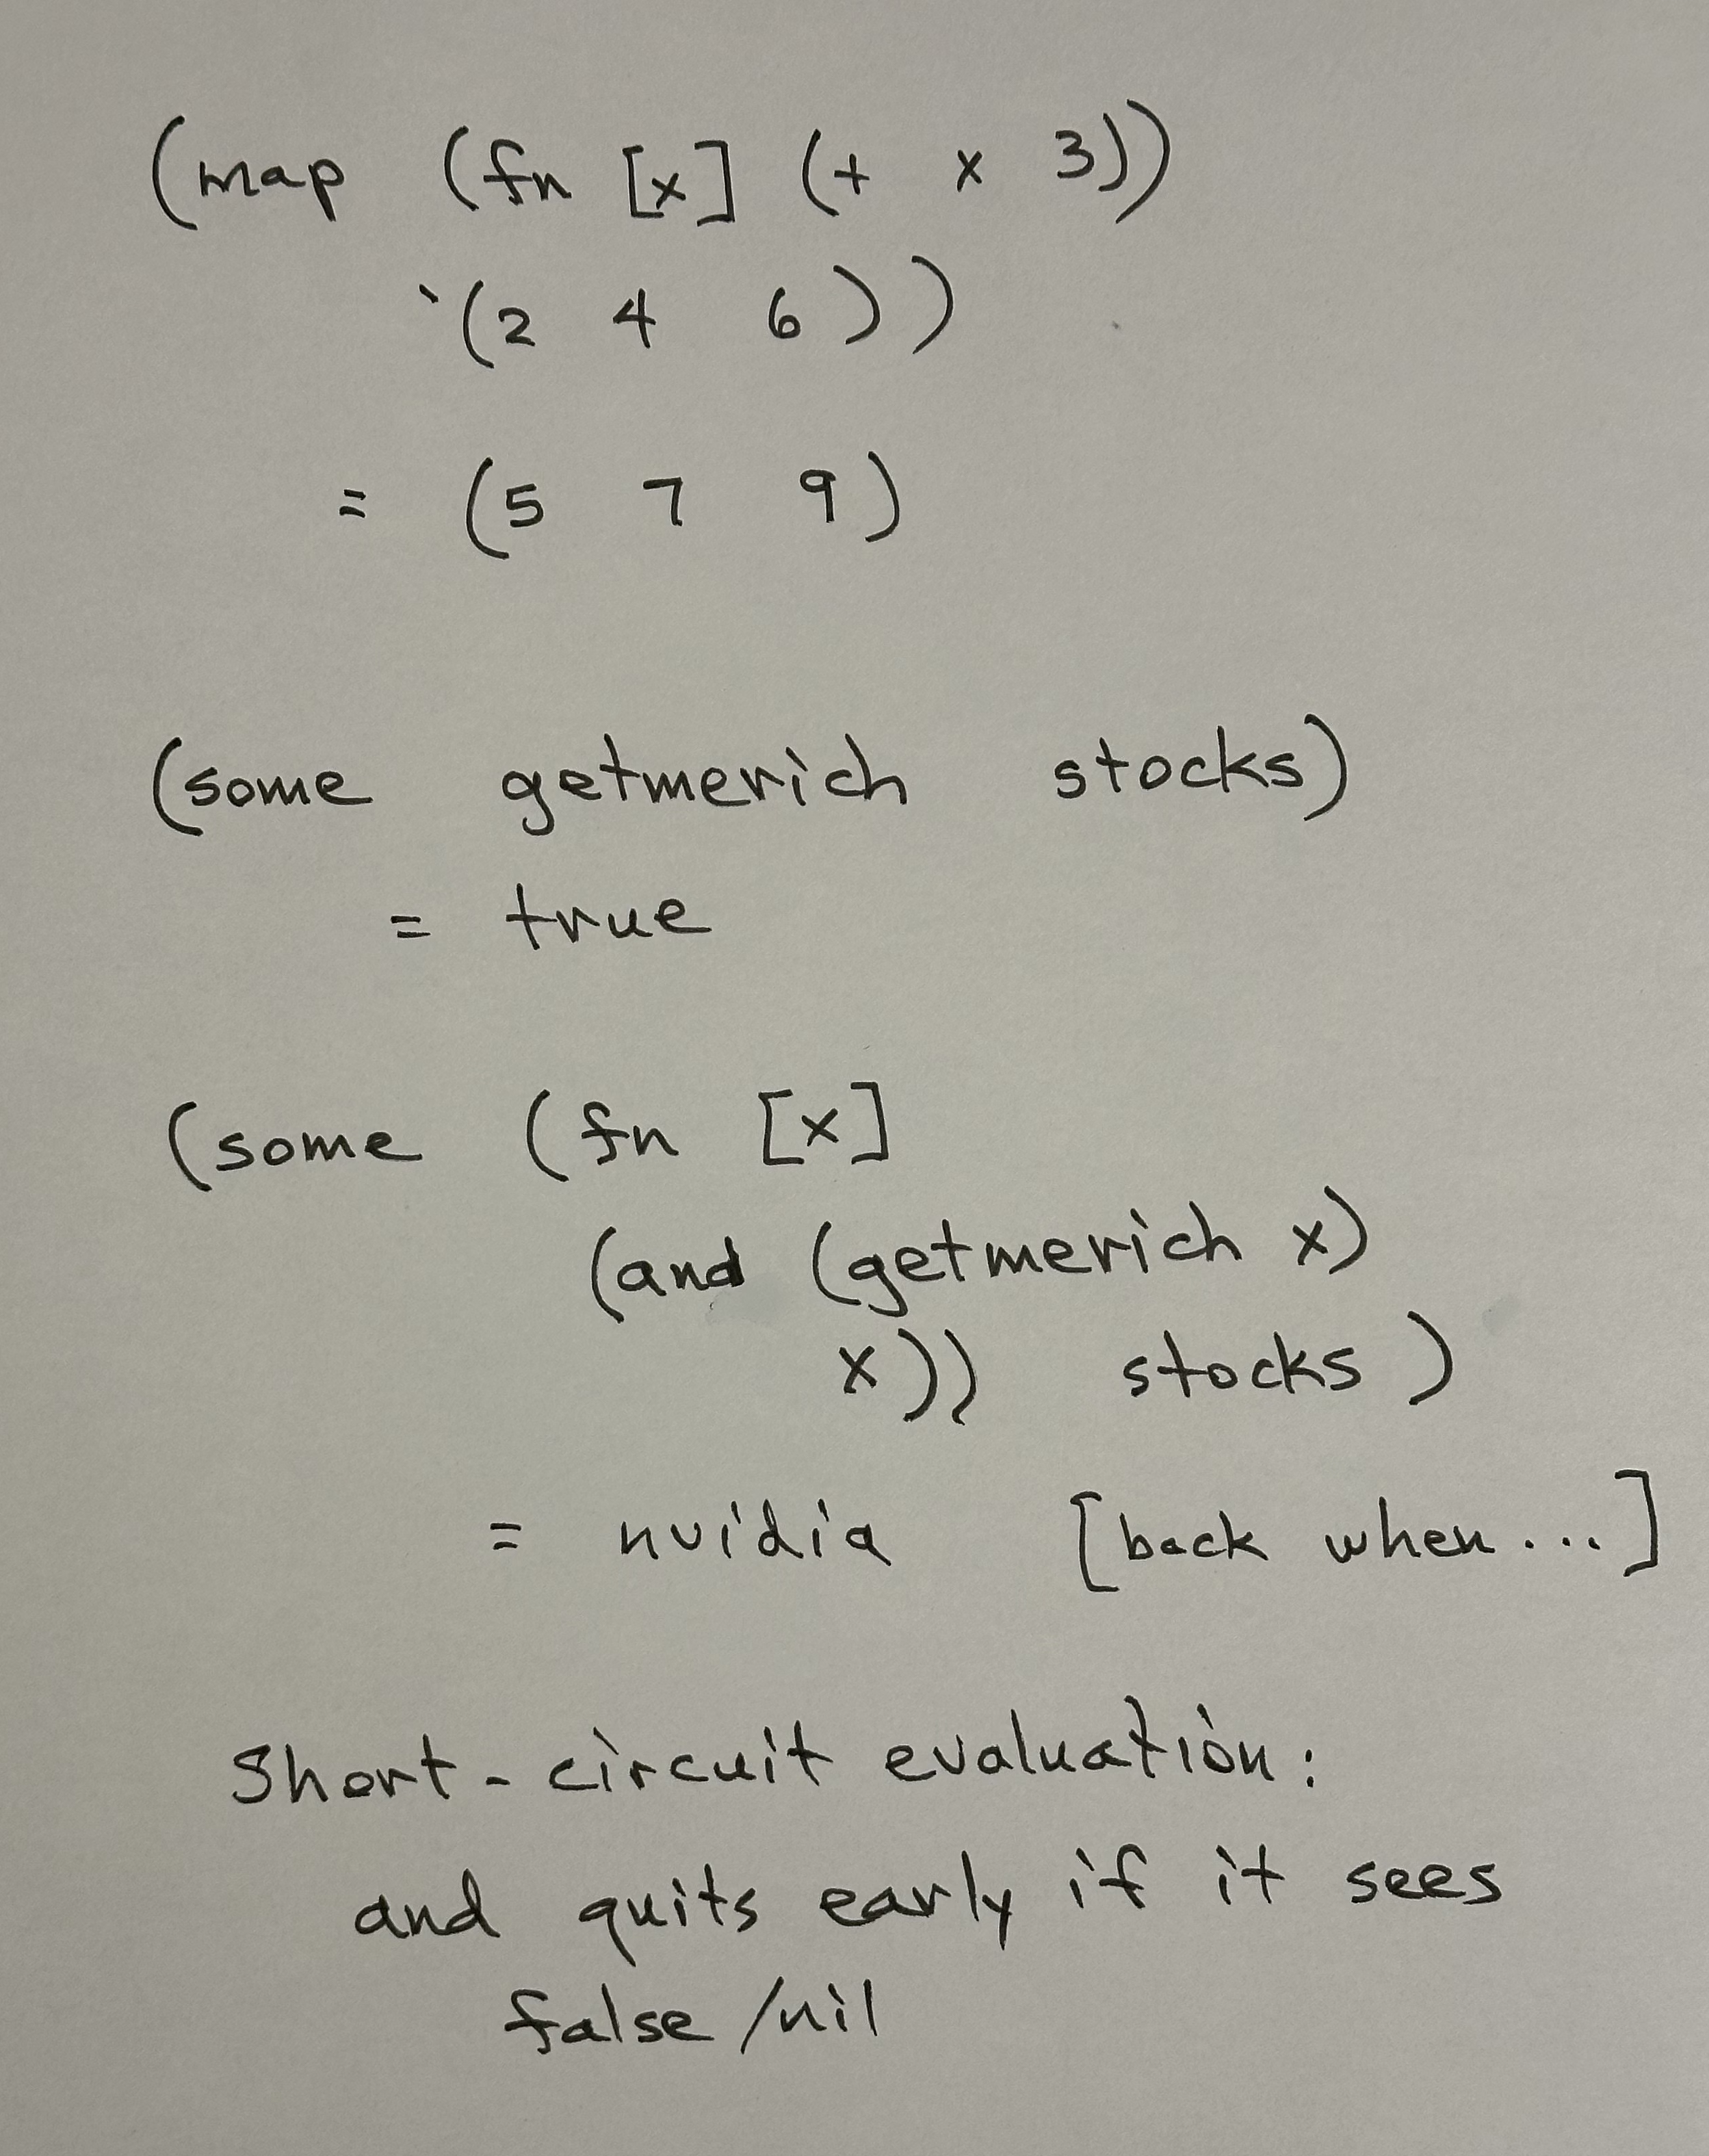 (map (fn [x] (+ x 3))
'(2 4 6))
= (5 7 9)
(some getmerich stocks)
= true
(some (fn [x]
(and (getmerich x)
x)) stocks)
= nvidia [back when...]
Short-circuit evaluation:
and quits early if it sees
false/nil